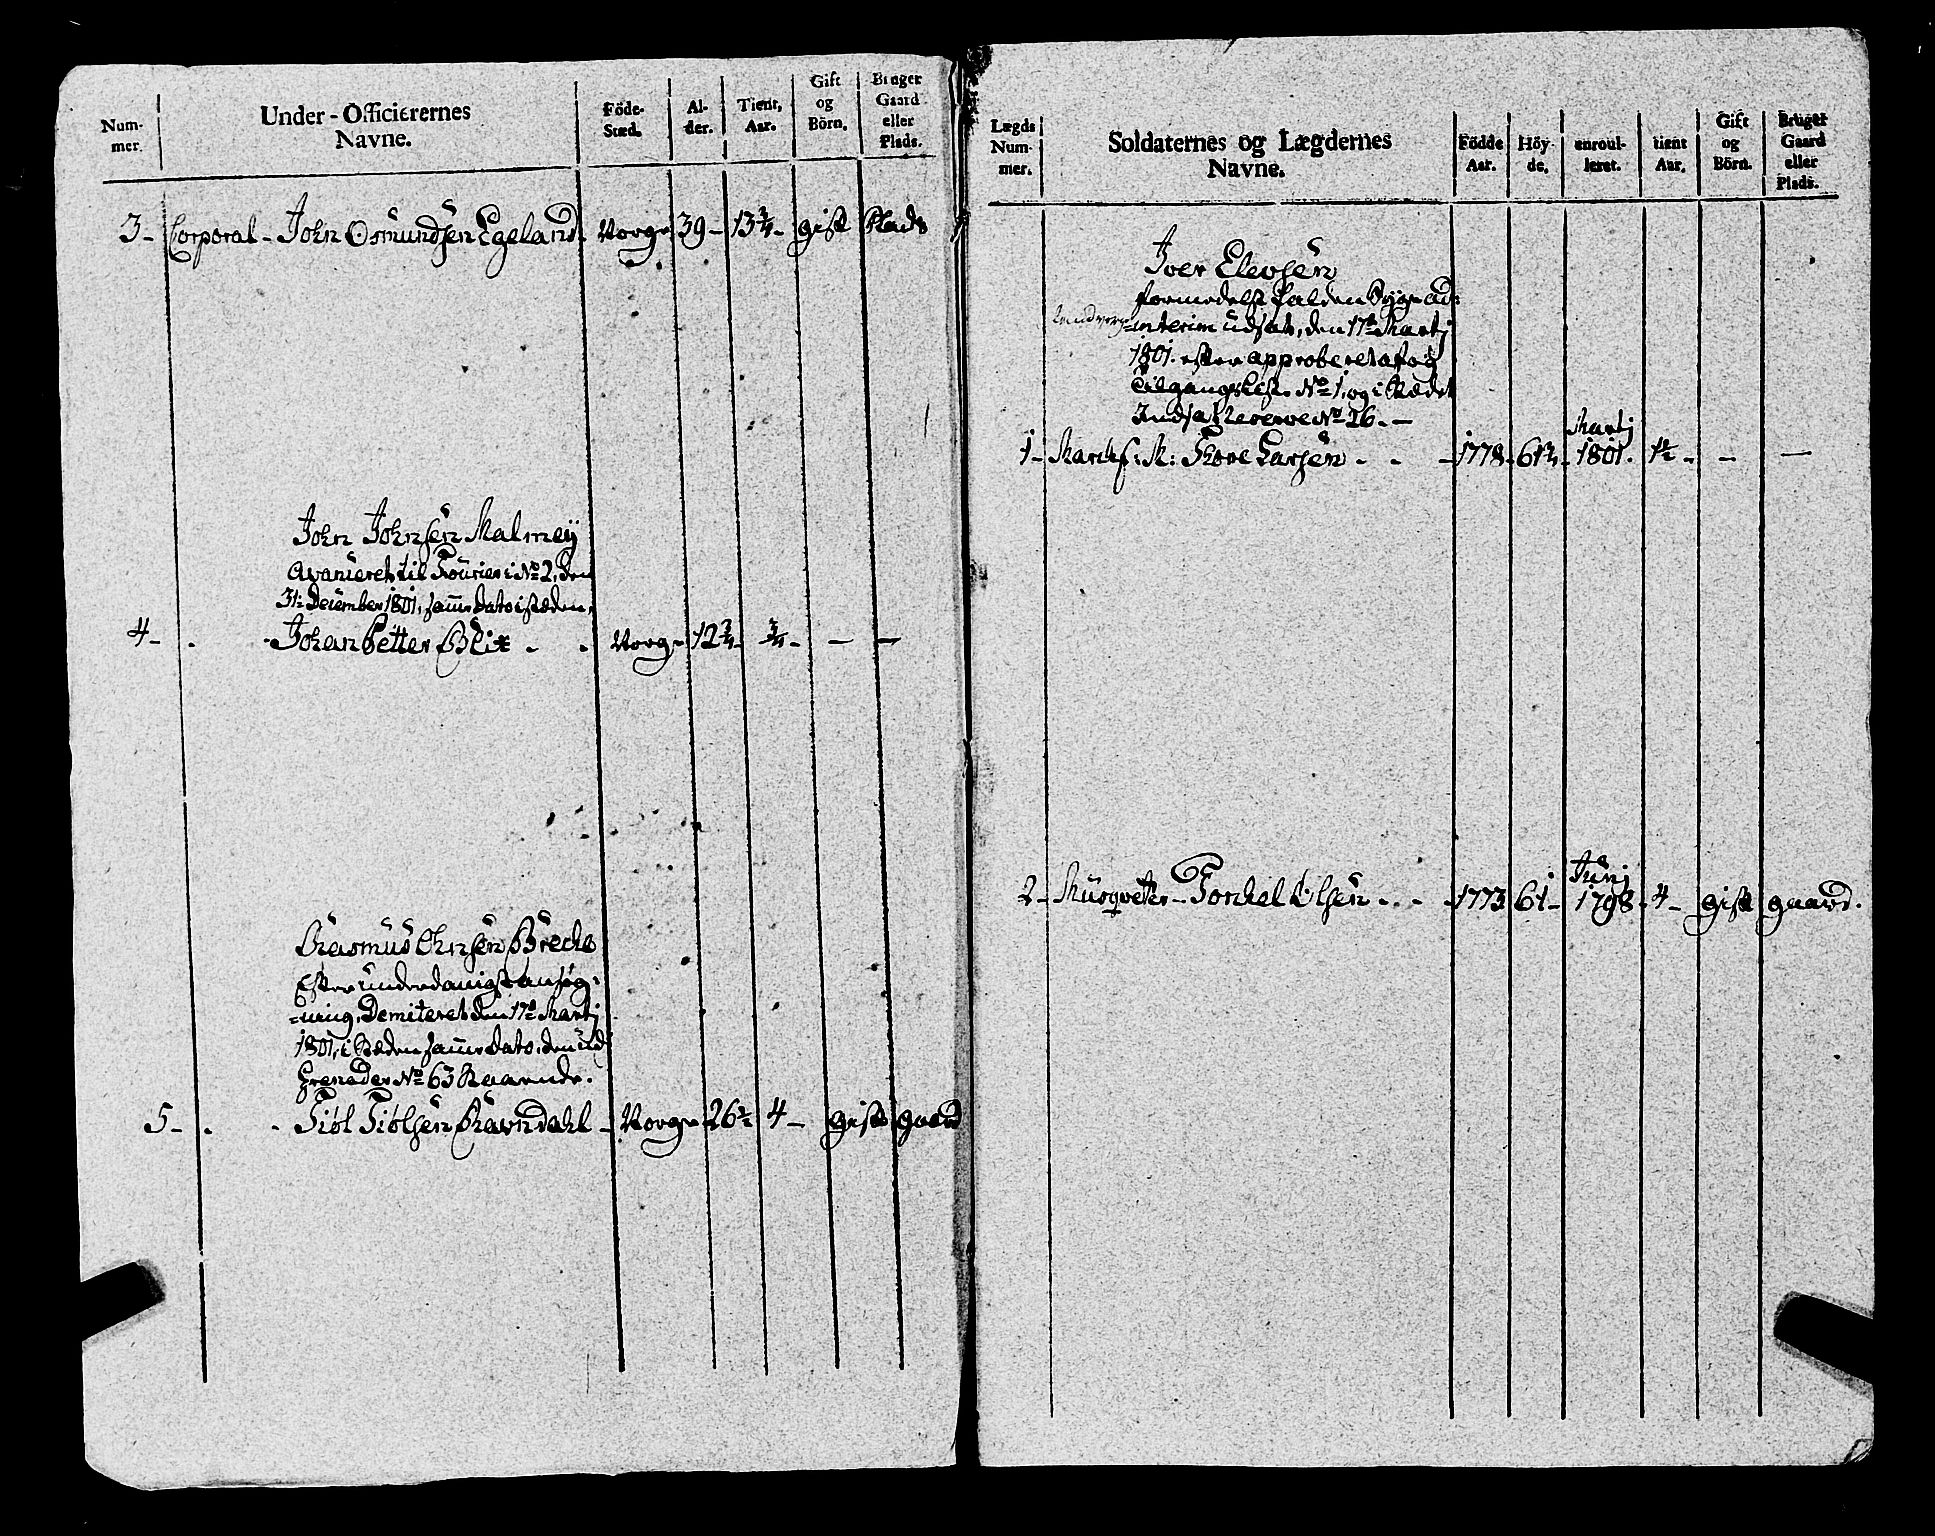 Num-
mer.
Under-Officierernes
Navne.
Föde-
Stæd.
Al-
der.
Tient,
Aar.
Gift
og
Börn.
Bruger
Gaard
eller
Plads.
3- Corporal - John Osmundsen Egeland - Norge 39 - 13 3/4 - gift Plads
John Johnsen Malmeij
Avanceret til Fourier i No 2, den
31: December 1801, samme dato i stæden,
4 - . - Johan Petter Blix . . Norge 12 3/4 - 3/4 - — —
Rasmus Ohnsen Brecke
Efter underdanigst ansøg=
=ning, Demiteret den 17de Martj
1801, i Stæden samme dato, den ud
Grenader No 63 Staaende.
5 - . - Tiøl Tiølsen Ravndahl - Norge 26 1/2 4 - gift gaard
Lægds
Num-
mer.
Soldaternes og Lægdernes
Navne.
Födde
Aar.
Höy-
de.
enroul-
leret.
tient
Aar.
Gift
og
Börn.
Bruger
Gaard
eller
Plads.
Iver Elevsen
formedelst falden Syge ad=
=interim udsat, den 17de Martj
1801. efter approberet af og
Tilgangs Liste No 1, og i Stædet
Indsat Reserve No 26. —
Martj
1 - M: Tore Larsen . . - 1778 - 61 3/4 - 1801. 1 1/2 - - —
Junj
2 - Musqveter - Torkel Olsen . . . - 1773 61 - 1798 - 4 - gift gaard.